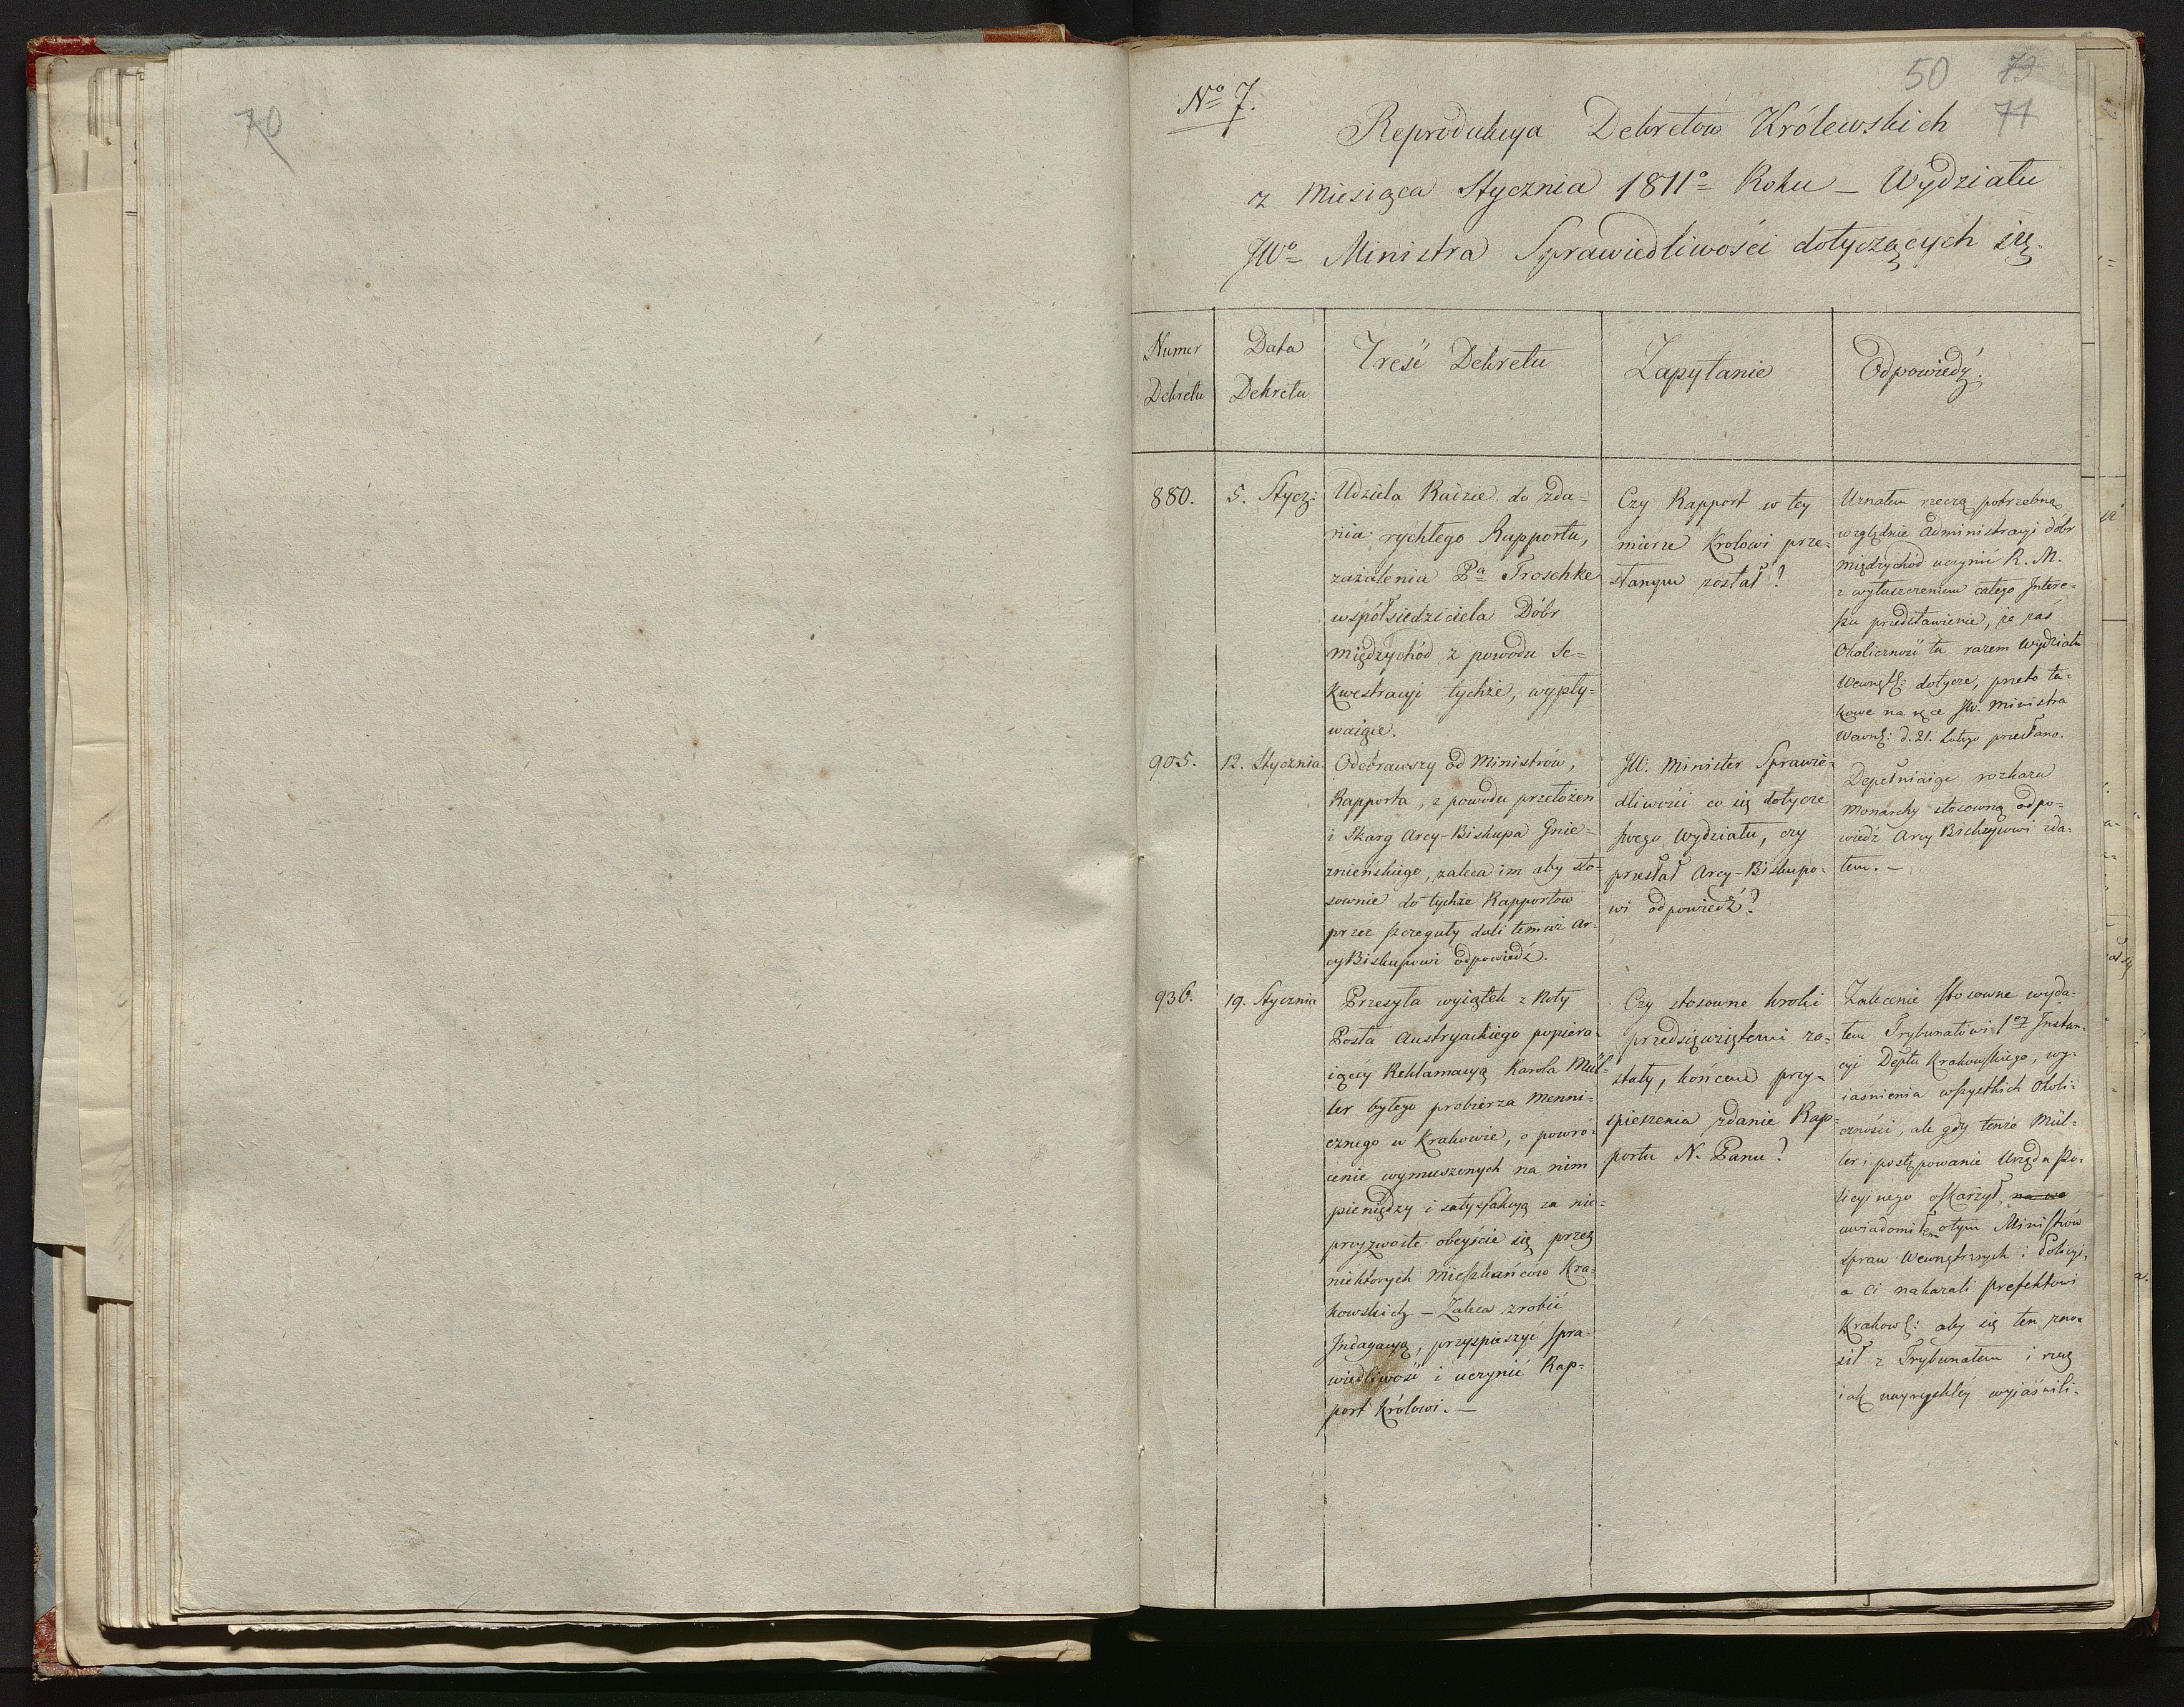 70
50 73
71
No 7.
Reprodukcya Dekretow Królewskich
z Miesiąca Stycznia 1811o Roku – Wydziału
JWo Ministra Sprawiedliwości dotyczących się.
Numer
Dekretu
Data
Dekretu
Treść Dekretu
Zapytanie
Odpowiedź.
880.
5. Stycz:
Udziela Radzie do zda=
nia rychłego Rapportu,
zażalenia Pa Troschke
współsiedziciela Dóbr
Międzychód z powodu Se=
kwestracyi tychże, wypły=
waiące.
Czy Rapport w tey
mierze Krolowi prze=
słanym został?
Uznałem rzeczą potrzebną
względnie Administracyi dóbr
Międzychód uczynić R. M.
z wyłuszczeniem całego Intere=
su przedstawienie, że zaś
Okoliczność ta razem Wydziału
Wewnętz: dotycze, przeto ta=
kowe na ręce JW. Ministra
Wewnę: d. 21. Lutego przesłano.
905.
12. Stycznia
Odebrawszy od Ministrów,
Rapporta, z powodu przełożen
i Skarg Arcy-Biskupa Gnie=
znieńskiego, zaleca im aby sto=
sownie do tychże Rapportow
przez szczeguły dali temuż Ar=
cyBiskupowi odpowiedź.
JW. Minister Sprawie=
dliwości co się dotycze
swego Wydziału, czy
przesłał Arcy-Biskupo=
wi odpowiedź?
Dopełniaiąc rozkazu
Monarchy stosowną odpo=
wiedź Arcy Biskupowi zda=
łem. –
936.
19. Stycznia
Przesyła wyiątek z Noty
Posła Austryackiego popiera=
iącey Reklamacyą Karola Mül=
ler byłego probierza Menni=
cznego w Krakowie, o powró=
cenie wymuszonych na nim
pieniędzy i satysfakcyą za nie=
przyzwoite obeyście się przez
niektorych Mieszkańców Kra=
kowskich – Zaleca zrobić
Indagacyą, przyspieszyć spra=
wiedliwość i uczynić Rap=
port Królowi. –
Czy stosowne kroki
przedsięwziętemi zo=
stały, końcem przy=
spieszenia zdanie Rap=
portu N. Panu?
Zalecenie stosowne wyda=
łem Trybunałowi 1ey Instan=
cyi Deptu Krakowskiego, wy=
iaśnienia wszystkich Okoli=
czności, ale gdy tenże Mül=
ler i postępowanie Urzędu Po=
licyinego oskarżył,
uwiadomiłem otym Ministrów
Spraw Wewnętrznych i Policyi,
a Ci nakazali Prefektowi
Krakows: aby się ten zno=
sił z Trybunałem i rzecz
iak nayrychley wyiaśnili.